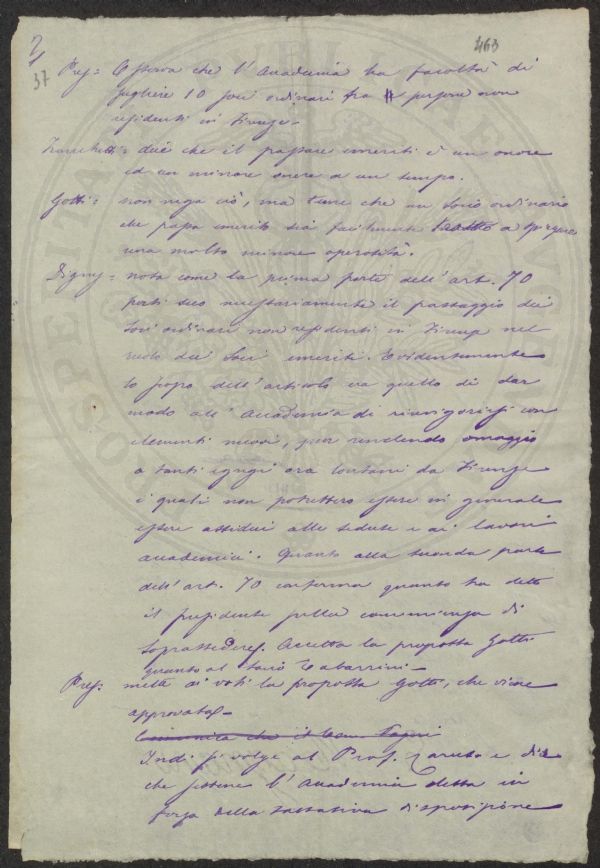 463
37
Pres: Osserva che l'Accademia ha facoltà di
scegliere 10 soci ordinari tra persone non
residenti in Firenze.
dice che il passare emeriti è un onore
ed un minore onere a un tempo.
Gotti: non nega ciò, ma teme che un Socio ordinario
che passa emerito sia facilmente tratto a spiegare
una molto minore operosità.
Digny: nota come la prima parte dell'art. 70
porti seco necessariamente il passaggio dei
Soci ordinari non residenti in Firenze nel
ruolo dei Soci emeriti. Evidentemente
lo scopo dell'articolo era quello di dar
modo all'Accademia di rinvigorirsi con
elementi nuovi, pur rendendo omaggio
a tanti egregi ora lontani da Firenze
i quali non potrebbero essere in generale
essere assidui alle sedute e ai lavori
accademici. Quanto alla seconda parte
dell'art. 70 conferma quanto ha detto
il presidente sulla convenienza di
soprassedere. Accetta la proposta Gotti
quanto al Socio Tabarrini.
Pres: mette ai voti la proposta Gotti, che viene
approvata.
Comunica che il
Indi si volge al Prof. e dice
che sebbene l'Accademia in
forza della disposizione